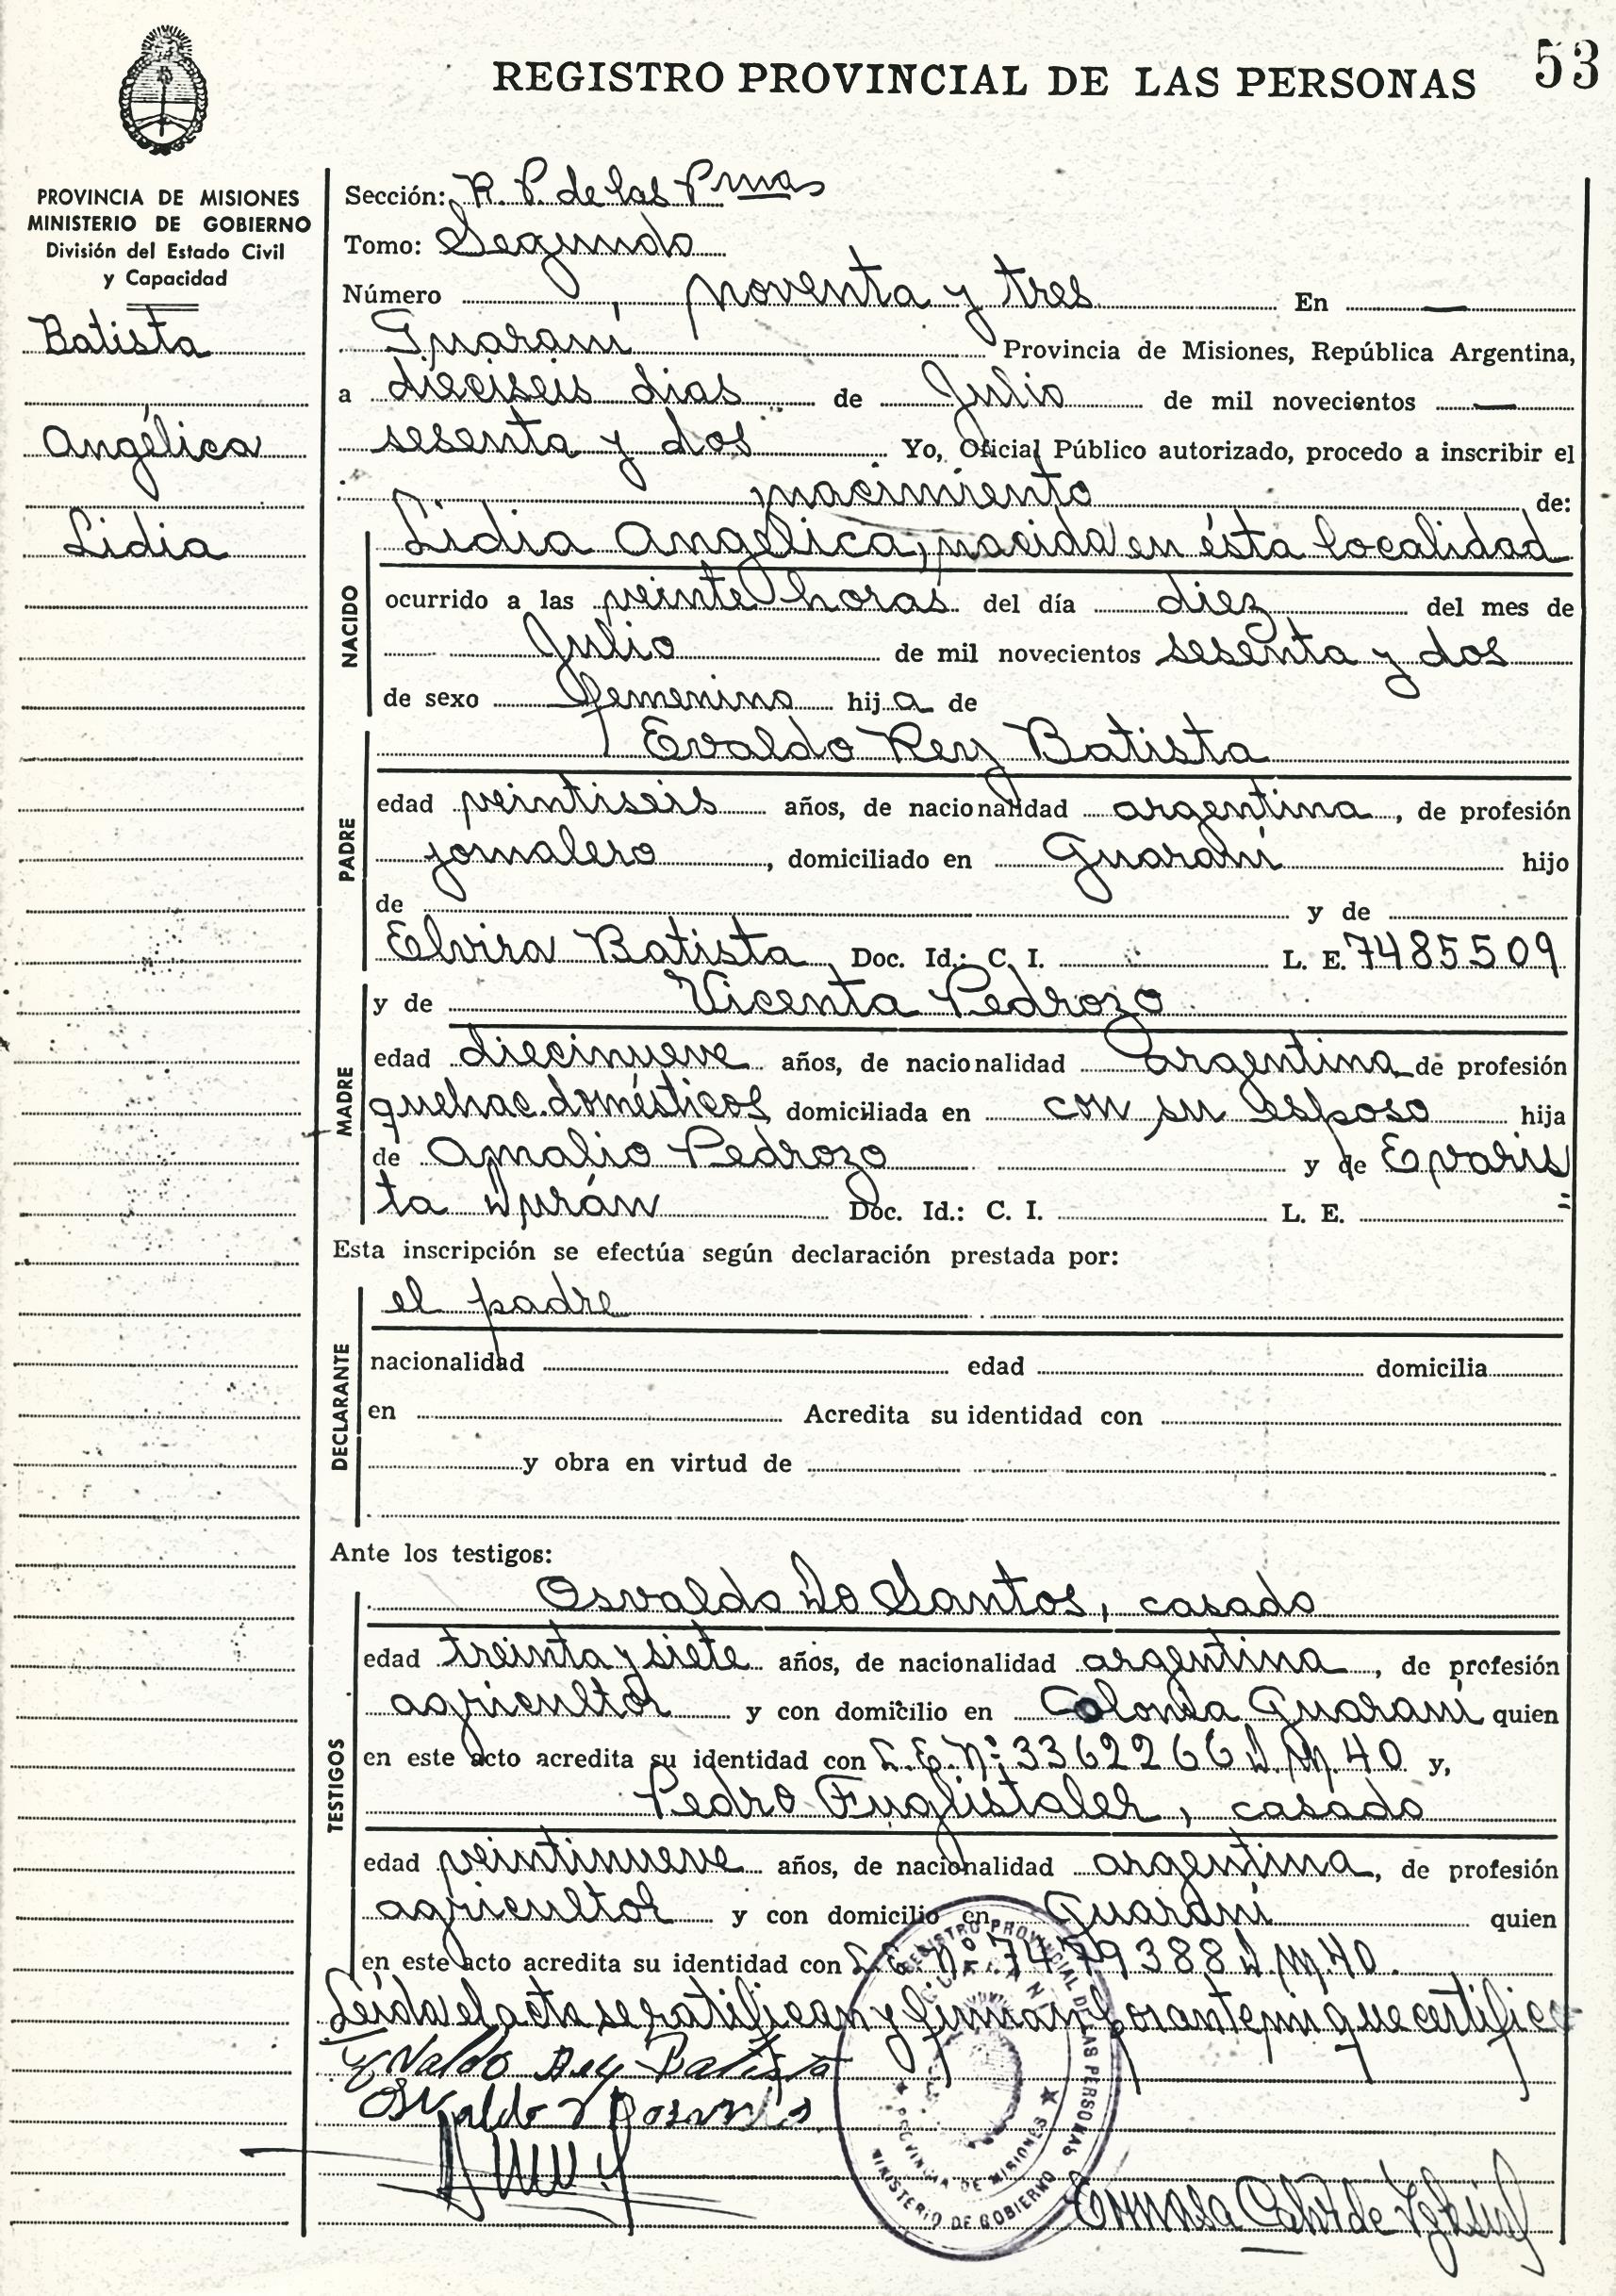 53
REGISTRO PROVINCIAL DE LAS PERSONAS
PROVINCIA DE MISIONES
MINISTERIO DE GOBIERNO
División del Estado Civil
y Capacidad
Batista
Angélica
Lidia
Sección: R. P. de las Prnas
Tomo: Segundo
Número noventa y tres En
Guaraní Provincia de Misiones, República Argentina,
a dieciseis dias de Julio de mil novecientos
sesenta y dos Yo, Oficial Público autorizado, procedo a inscribir el
nacimiento de:
NACIDO
Lidia Angélica, nacida en ésta localidad
ocurrido a las veinte horas del día diez del mes de
Julio de mil novecientos sesenta y dos
de sexo femenino hija de
PADRE
Evaldo Rey Batista
edad veintiseis años, de nacionalidad argentina, de profesión
jornalero, domiciliado en Guaraní hijo
de y de
Elvira Batista Doc. Id.: C. I. L. E. 7485509
MADRE
y de Vicenta Pedrozo
edad diecinueve años, de nacionalidad argentina de profesión
quehac. domésticos domiciliada en con su esposo hija
de Amalio Pedrozo y de Evaris
ta Durán Doc. Id.: C. I. L. E.
Esta inscripción se efectúa según declaración prestada por:
DECLARANTE
el padre
nacionalidad edad domicilia
en Acredita su identidad con
y obra en virtud de
Ante los testigos:
TESTIGOS
Osvaldo Do Santos, casado
edad treinta y siete años, de nacionalidad argentina, de profesión
agricultor y con domicilio en Colonia Guaraní quien
en este acto acredita su identidad con L. E. Nº: 3362266 D. M. 40 y,
Pedro Fuglistaler, casado
edad veintinueve años, de nacionalidad argentina, de profesión
agricultor y con domicilio en Guaraní quien
en este acto acredita su identidad con L. E. Nº: 7479388 D. M. 40.
Leída el acta se ratifican y firman por ante mi que certifico
Evaldo Rey Batista
Osvaldo
REGISTRO PROVINCIAL DE LAS PERSONAS
GUARANI
PROVINCIA DE MISIONES
MINISTERIO DE GOBIERNO